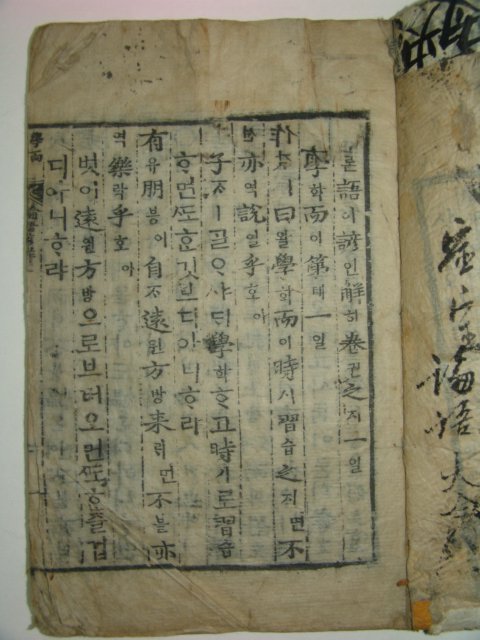 論론語어諺언解ᄒᆡ卷권之지一일
學ᄒᆞᆨ而이第뎨一일
子ᄌᆞㅣ曰왈學ᄒᆞᆨ而이時시習습之지면不
블亦역說열乎호아
子ᄌᆞㅣᄀᆞᆯᄋᆞ샤ᄃᆡ學ᄒᆞᆨᄒᆞ고時시로習습
ᄒᆞ면ᄯᅩᄒᆞᆫ깃브디아니ᄒᆞ랴
有유朋븡이自ᄌᆞ遠원方방來ᄅᆡ면不블亦
역樂락乎호아
벗이遠원方방으로브터오면ᄯᅩᄒᆞᆫ즐겁
디아니ᄒᆞ랴
學而
論語大全